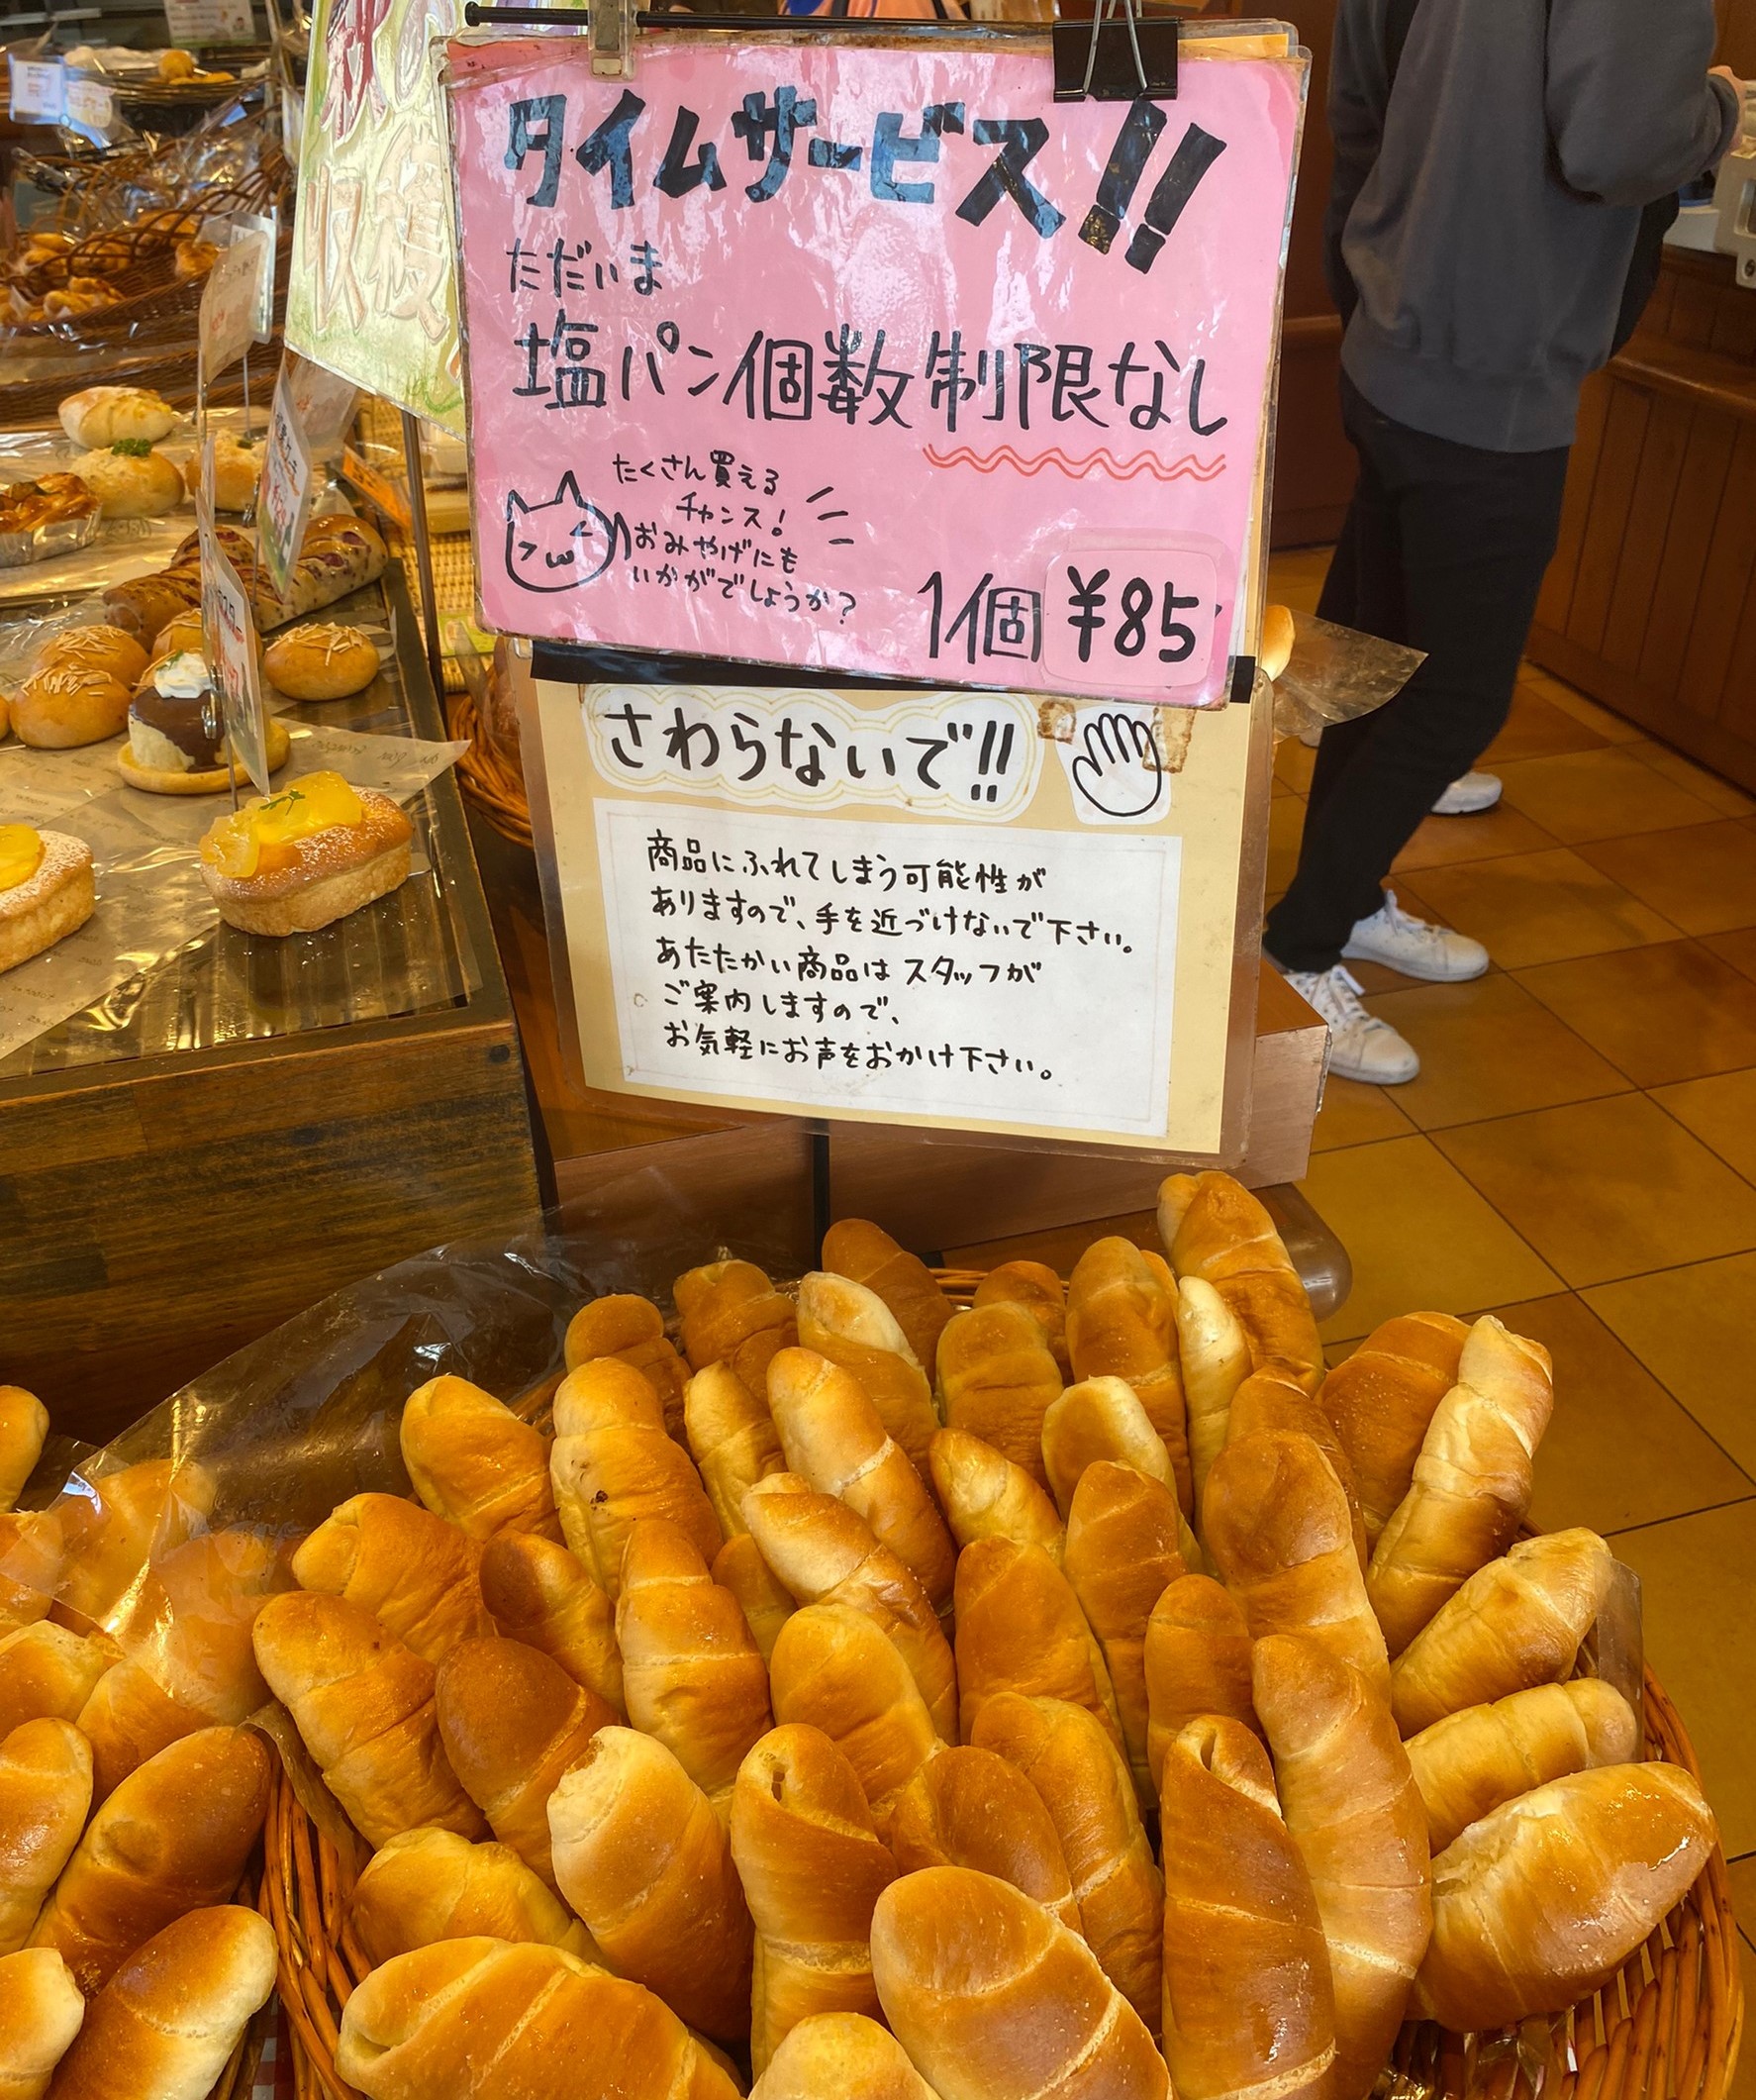 タイムサービス!!
ただいま
塩パン個数制限なし
たくさん買える
チャンス!
おみやげにも
いかがでしょうか?
1個 ¥85
さわらないで!!
商品にふれてしまう可能性が
ありますので、手を近づけないで下さい。
あたたかい商品はスタッフが
ご案内しますので、
お気軽にお声をおかけ下さい。
収穫